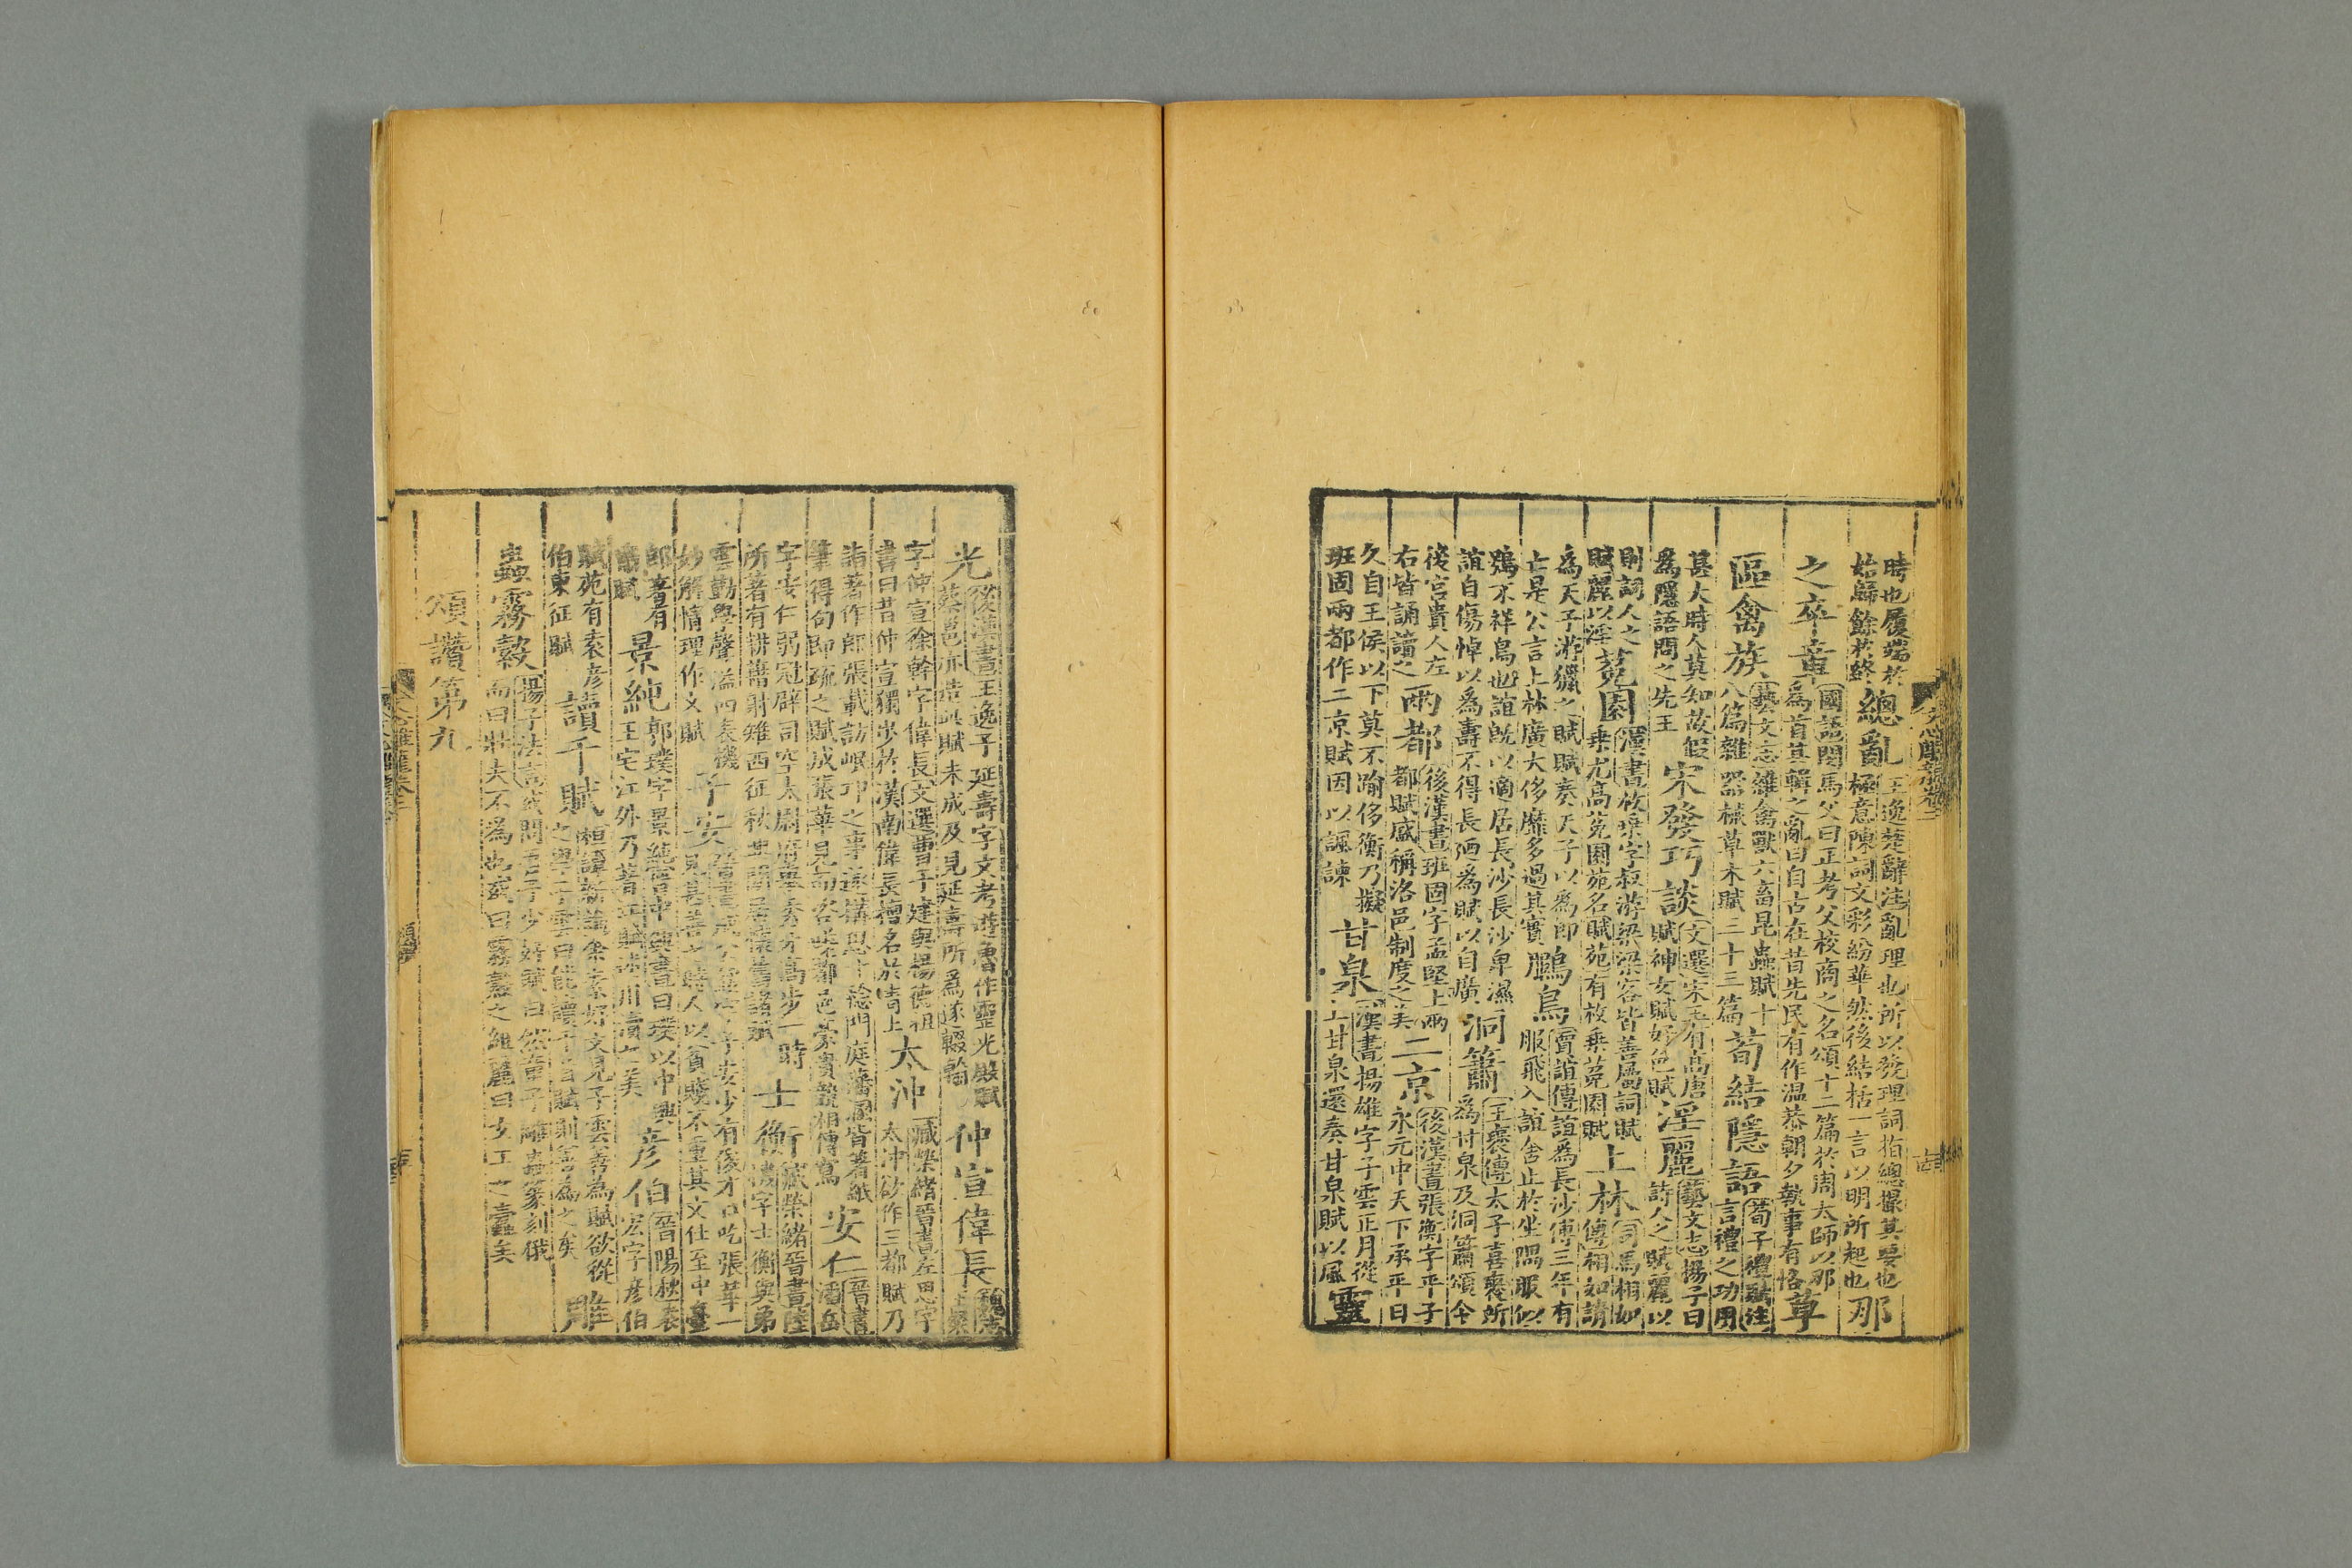 文心雕龍卷二
時也履端於始歸餘於終總亂王逸楚辭注亂理也所以發理詞指總攝其要也極意陳詞文彩紛華然後結括一言以明所起也那
之卒章國語閔馬父曰正考父校商之名頌十二篇於周太師以那為首其輯之亂曰自古在昔先民有作温恭朝夕執事有恪草
區禽族藝文志雜禽獸六畜昆蟲賦十八篇雜器械草木賦三十三篇荀結隱語荀子禮賦注言禮之功用
甚大時人莫知故假為隱語問之先王宋發巧談文選宋玉有高唐賦神女賦好色賦淫麗藝文志揚子曰詩人之賦麗以
則詞人之賦麗以淫菟園漢書枚乗字叔游梁梁客皆善屬詞賦乗尤高菟園苑名賦苑有枚乗菟園賦上林司馬相如傳相如請
為天子游獵之賦賦奏天子以為郎亡是公言上林廣大侈靡多過其實鵩鳥賈誼傳誼為長沙傅三年有服飛入誼舍止於坐隅服似
鴞不祥鳥也誼既以適居長沙長沙卑濕誼自傷悼以為壽不得長迺為賦以自廣洞簫王褒傳太子喜褒所為甘泉及洞簫頌令
後宮貴人左右皆誦讀之兩都後漢書班固字孟堅上兩都賦盛稱洛邑制度之美二京後漢書張衡字平子永元中天下承平日
久自王侯以下莫不踰侈衡乃擬班固兩都作二京賦因以諷諫甘泉漢書揚雄字子雲正月從上甘泉還奏甘泉賦以風靈
光後漢書王逸子延壽字文考遊魯作靈光殿賦蔡邕亦造此賦未成及見延壽所為遂輟翰仲宣偉長魏志王粲
字仲宣徐幹字偉長文選曹子建與楊德祖書曰昔仲宣獨步於漢南偉長擅名於青土太沖臧榮緒晉書左思字太沖欲作三都賦乃
詣著作郎張載訪岷卭之事遂構思十稔門庭藩溷皆著紙筆得句即疏之賦成張華見而咨嗟都邑豪貴競相傳寫安仁晉書潘岳
字安仁弱冠辟司空太尉府舉秀才高步一時所著有耕藉射雉西征秋興閒居懷舊諸賦士衡臧榮緒晉書陸機字士衡與弟
雲勤學聲溢四表機妙解情理作文賦子安晉書成公綏字子安少有俊才口吃張華一見甚善之時人以貧賤不重其文仕至中臺
郎著有嘯賦景純郭璞字景純晉中興書曰璞以中興王宅江外乃著江賦述川瀆之美彦伯晉陽秋袁宏字彦伯
賦苑有袁彦伯東征賦讀千賦桓譚新論余素好文見子雲善為賦欲從之學子雲曰能讀千首賦則善為之矣雕
蟲霧縠揚子法言或問吾子少好賦曰然童子雕蟲篆刻俄而曰壯夫不為也或曰霧縠之組麗曰女工之蠧矣
頌讚第九